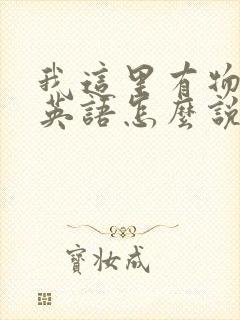 我這里有物
英語怎麼說
寶妝成